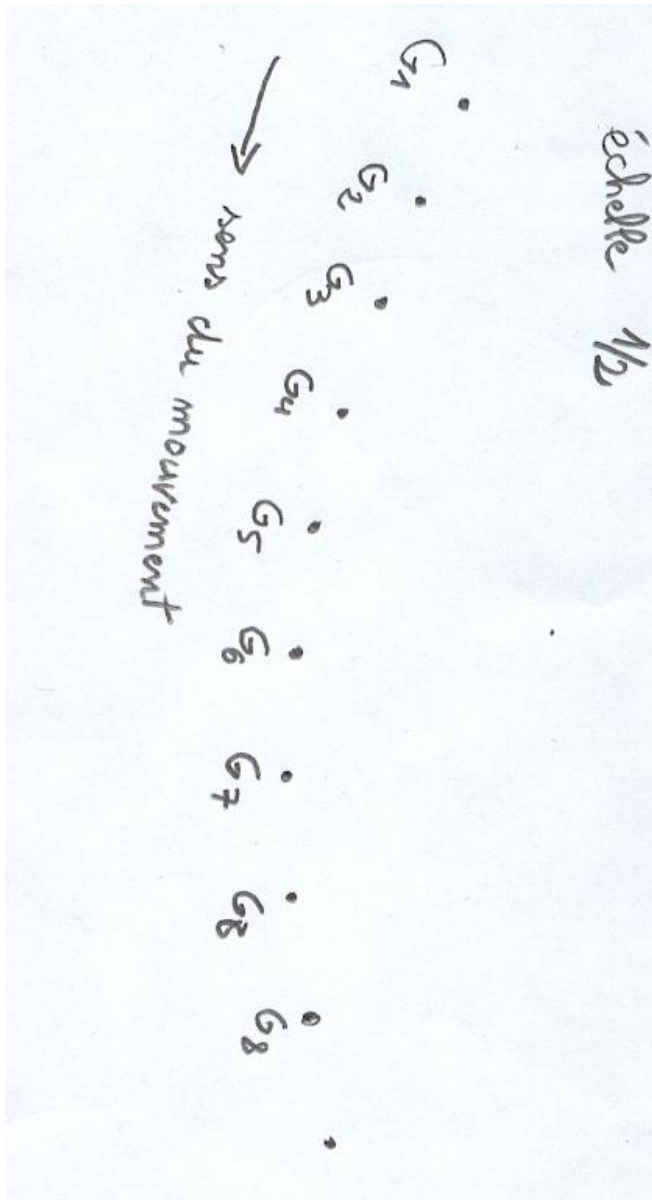 échelle 1/2
G1
G2
G3
G4
G5
G6
G7
G8
G8
sens du mouvement